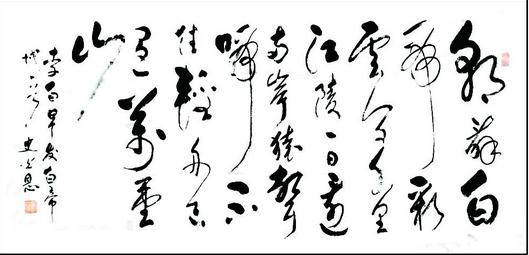 朝辭白
帝彩
雲间千里
江陵一日還
两岸猿聲
啼不
住輕舟已
過萬重
山
李白早发白帝
城